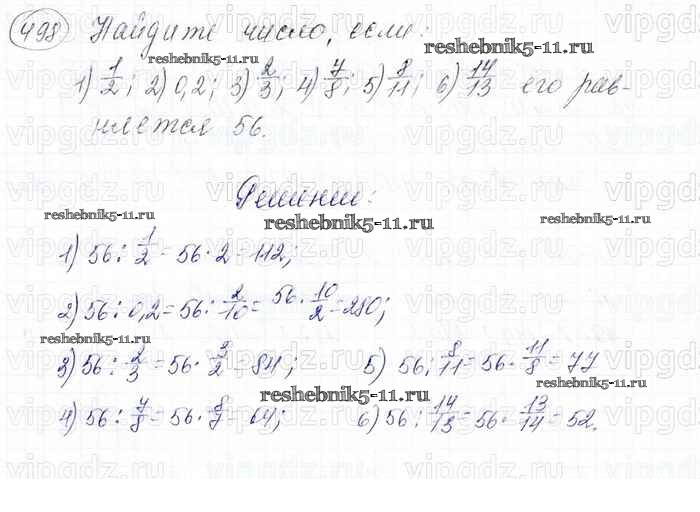 498 Найдите число, если:
1) 1/2; 2) 0,2; 3) 2/3; 4) 7/8; 5) 8/11; 6) 14/13 его рав-
няется 56.
Решение:
reshebnik5-11.ru
reshebnik5-11.ru
reshebnik5-11.ru
1) 56 : 1/2 = 56 · 2 = 112;
2) 56 : 0,2 = 56 : 2/10 = 56 · 10/2 = 280;
reshebnik5-11.ru
3) 56 : 2/3 = 56 · 3/2 = 84; 5) 56 : 8/11 = 56 · 11/8 = 77
reshebnik5-11.ru
reshebnik5-11.ru
4) 56 : 7/8 = 56 · 8/7 = 64; 6) 56 : 14/13 = 56 · 13/14 = 52.
vipgdz.ru